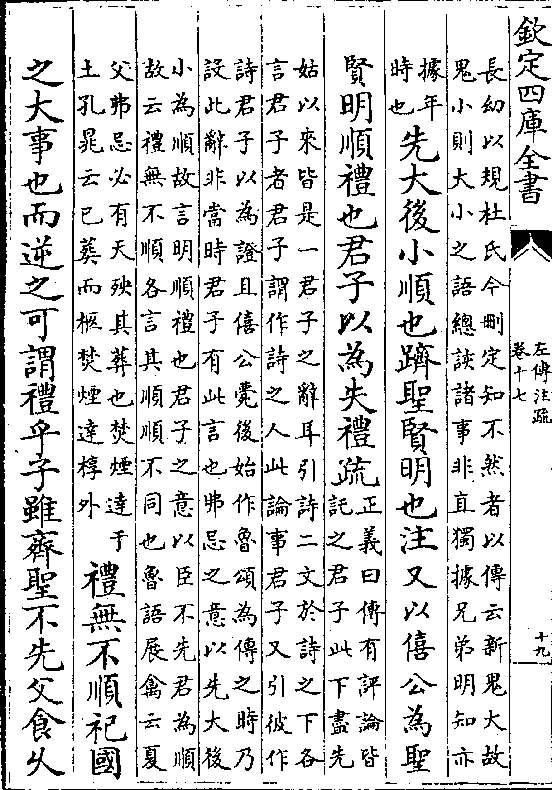 欽定四庫全書
左傳注疏
卷十七
十九
長幼以規杜氏今刪定知不然者以傳云新鬼大故
鬼小則大小之語總談諸事非直獨據兄弟明知亦
據年
時也
先大後小順也躋聖賢明也注又以僖公為聖
賢明順禮也君子以為失禮疏
正義曰傳有評論皆
託之君子此下盡先
姑以來皆是一君子之辭耳引詩二文於詩之下各
言君子者君子謂作詩之人此論事君子又引彼作
詩君子以為證且僖公薨後始作魯頌為傳之時乃
設此辭非當時君子有此言也弗忌之意以先大後
小為順故言明順禮也君子之意以臣不先君為順
故云禮無不順各言其順順不同也魯語展禽云夏
父弗忌必有天殃其葬也焚煙達于
土孔晁云已葬而柩焚煙達椁外
禮無不順祀國
之大事也而逆之可謂禮乎子雖齊聖不先父食久